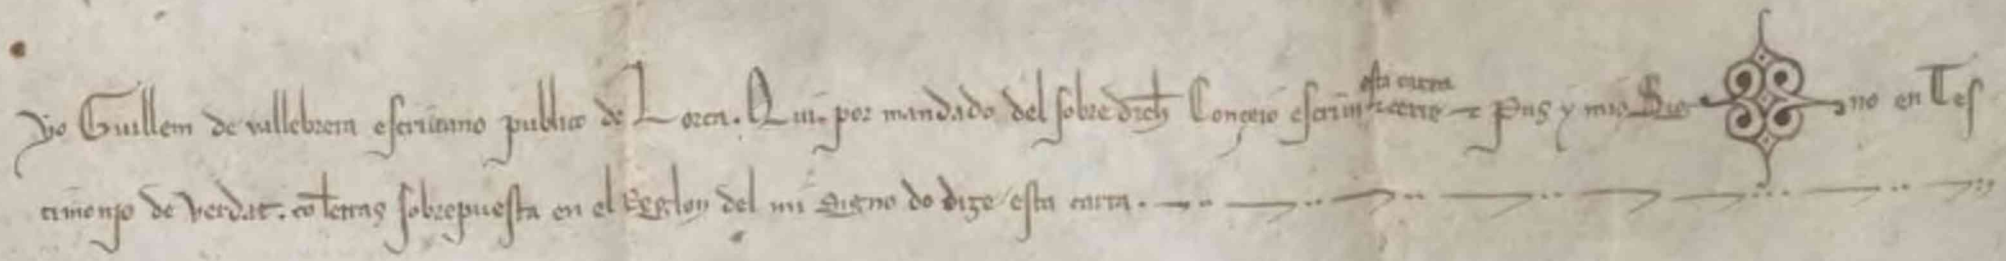 yo Guillem de vallebrera escriuano publico de Lorca. Qui por mandado del sobredicho Conçeio escriui esta carta e pus y mio Sig no en Tes
timonyo de verdat. con letras sobrepuesta en el Reglon del mi Signo do dize esta carta.